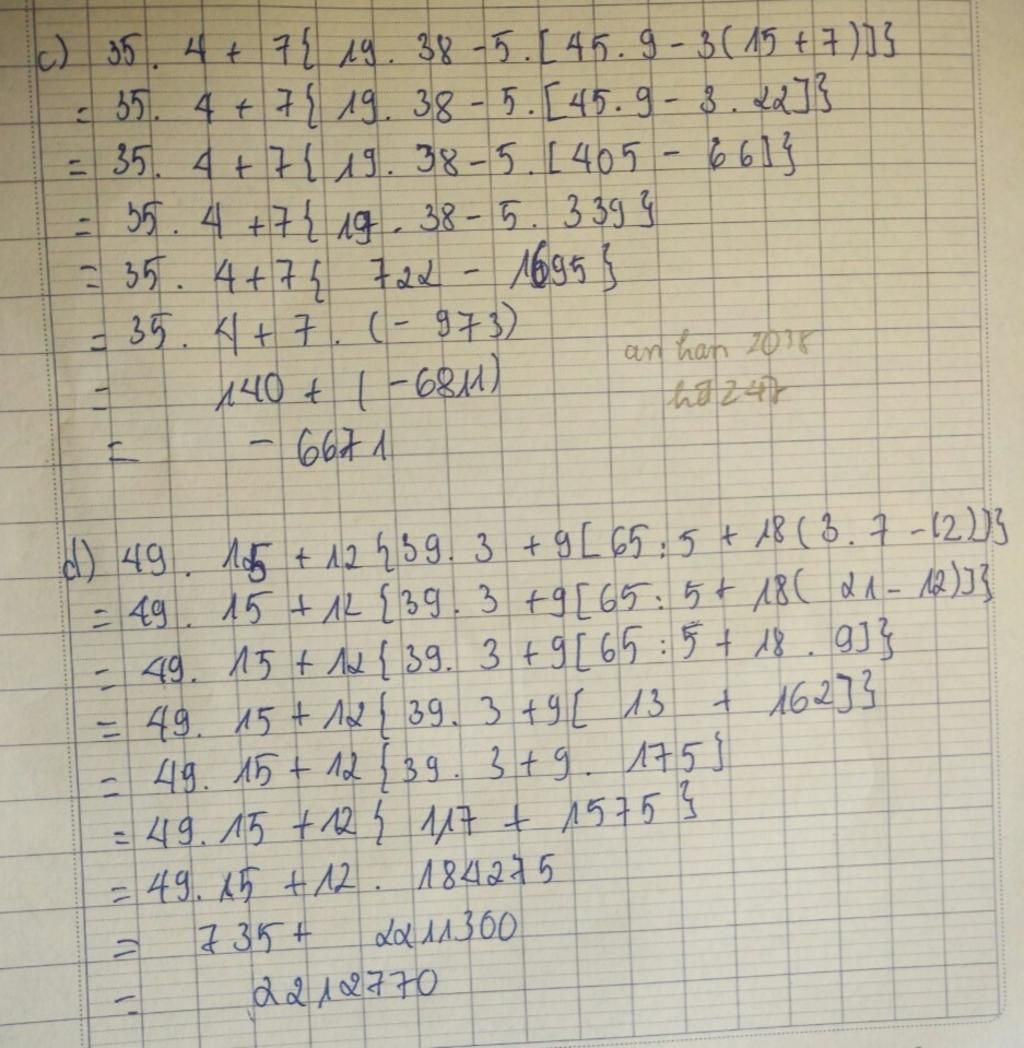 c) 35. 4 + 7{ 19. 38 - 5. [45. 9 - 3(15 + 7)]}
= 35. 4 + 7{ 19. 38 - 5. [45. 9 - 3. 22]}
= 35. 4 + 7{ 19. 38 - 5. [405 - 66]}
= 35. 4 + 7{ 19. 38 - 5. 339}
= 35. 4 + 7{ 722 - 1695}
= 35. 4 + 7. (- 973)
an han 2018
= 140 + (-6811)
hd 247
= - 6671
d) 49. 15 + 12 {39. 3 + 9[ 65 : 5 + 18(3. 7 - 12)]}
= 49. 15 + 12 {39. 3 + 9[65 : 5 + 18( 21 - 12)]}
= 49. 15 + 12{ 39. 3 + 9[65 : 5 + 18. 9]}
= 49. 15 + 12{ 39. 3 + 9[ 13 + 162]}
= 49. 15 + 12 {39. 3 + 9. 175}
= 49. 15 + 12{ 117 + 1575}
= 49. 15 + 12. 184275
= 735 + 2211300
= 2212770